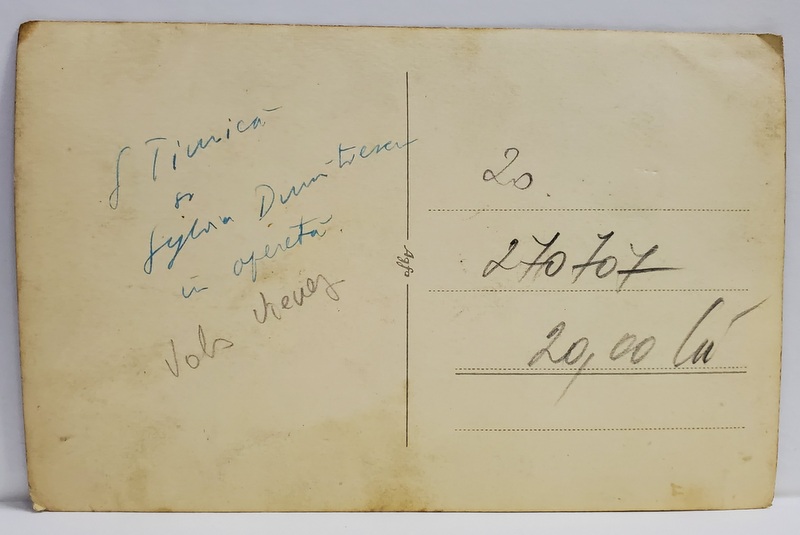 G Timică
și
Sylvia Dumitrescu
în operetă.
Vals vienez
Agfa
20.
270707
20,00 lei